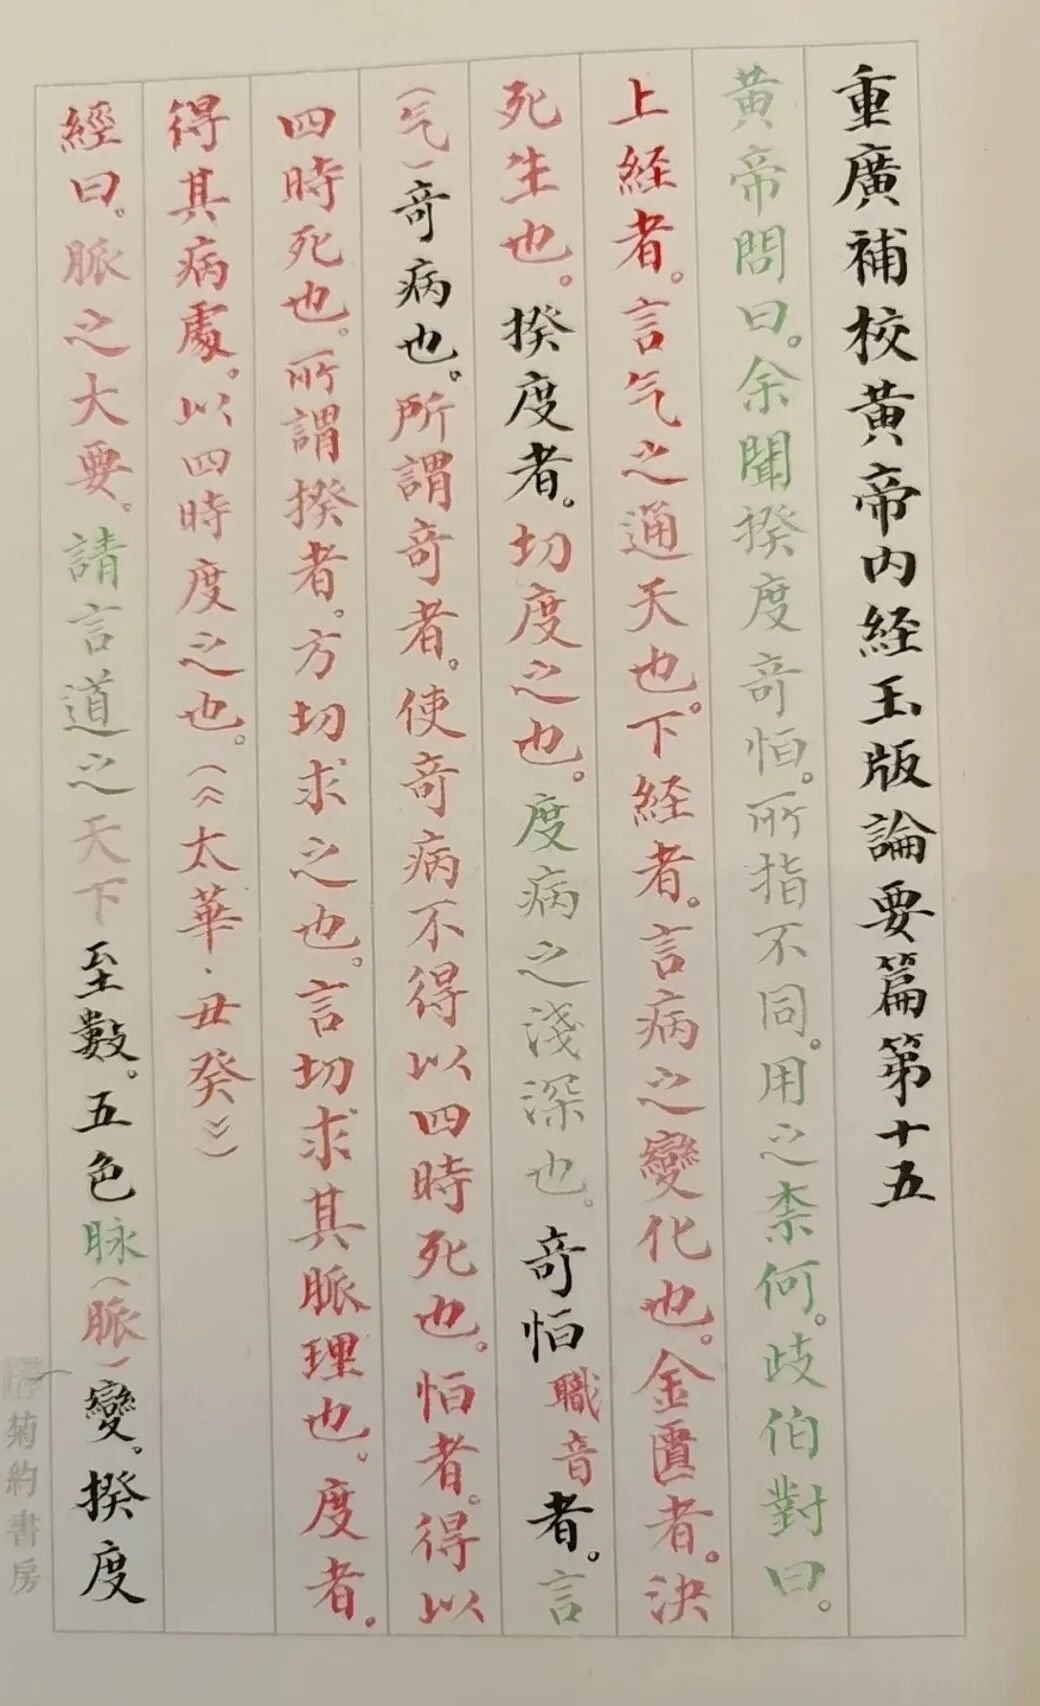 重廣補校黃帝内経玉版論要篇第十五
黃帝問曰。余聞揆度竒恒。所指不同。用之柰何。歧伯對曰。
上経者。言气之通天也。下経者。言病之變化也。金匱者。決
死生也。揆度者。切度之也。度病之淺深也。竒恒職音者。言
(气)竒病也。所謂竒者。使竒病不得以四時死也。恒者。得以
四時死也。所謂揆者。方切求之也。言切求其脈理也。度者。
得其病處。以四時度之也。(《太華·丑癸》)
經曰。脈之大要。請言道之天下至數。五色脉(脈)變。揆度
菊約書房